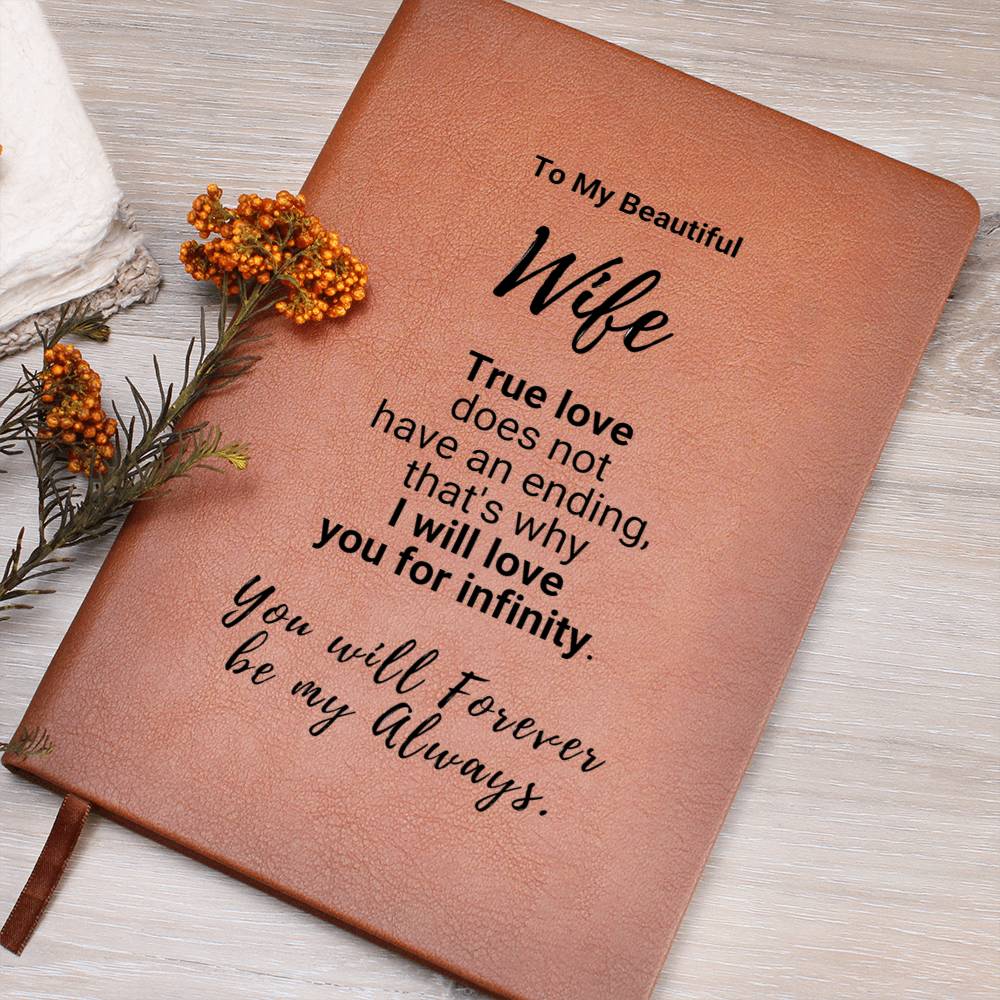 To My Beautiful
Wife
True love
does not
have an ending,
that's why
I will love
you for infinity.
You will Forever
be my Always.